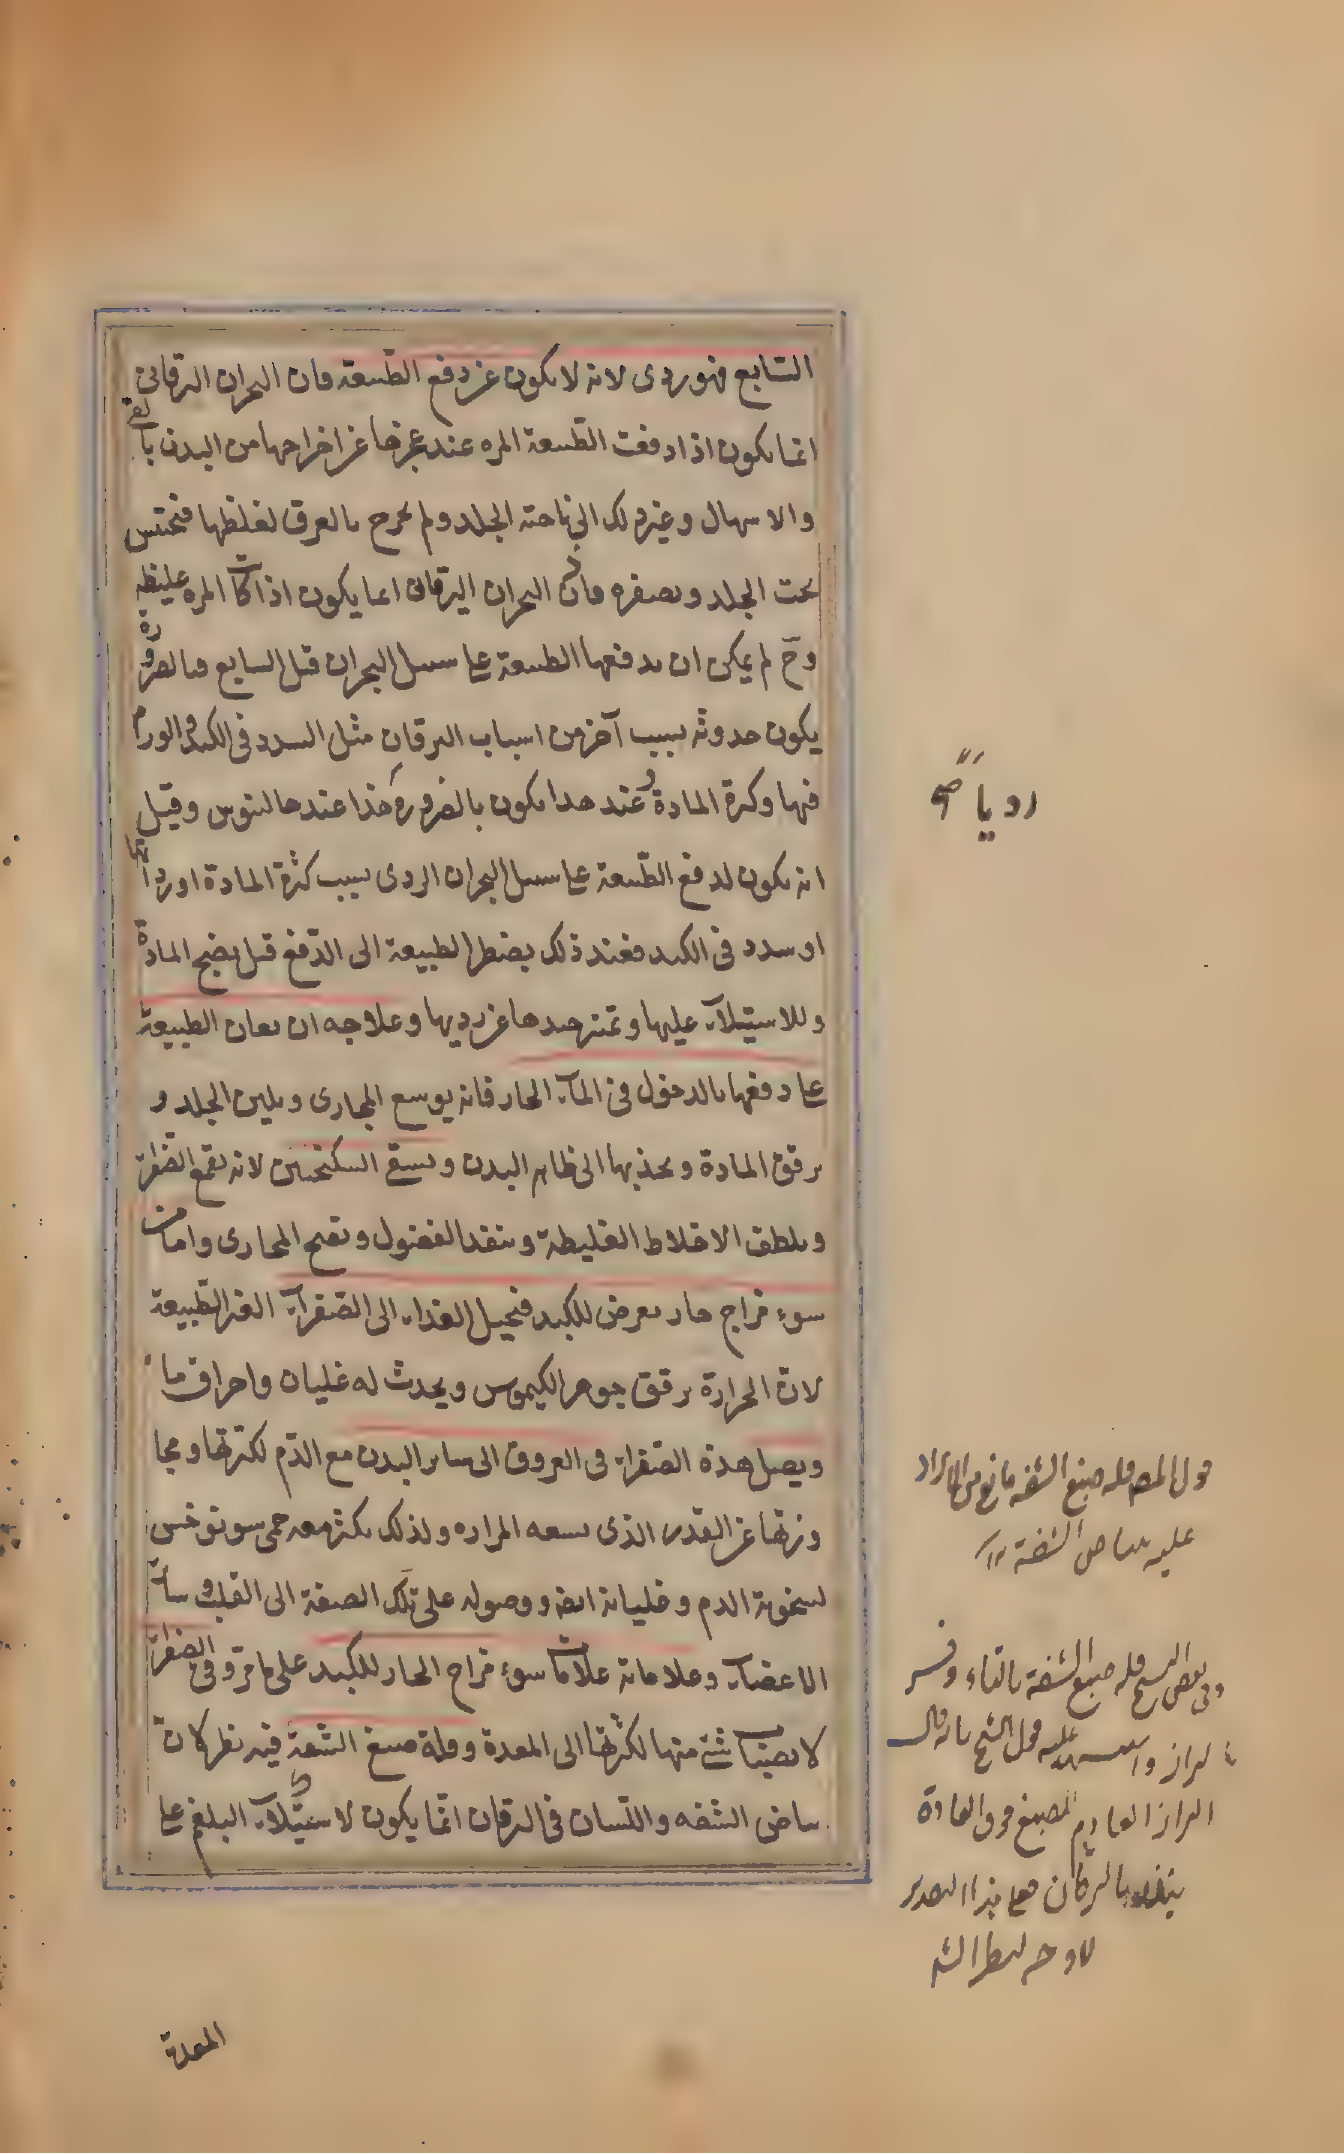 السابع فهو ردى لانه لا يكون عن دفع الطبيعة فان البحران اليرقانى
انما يكون اذا دفعت الطبيعة المره عند عجزها عن اخراجها من البدن بالقئ
والاسهال وغير ذلك الى ناحية الجلد ولم يخرج بالعرق لغلظها فيحتبس
تحت الجلد ويصفره فاذن البحران اليرقانى انما يكون اذا كانت المره غليظة
وح لم يمكن ان يدفعها الطبيعة على سبيل البحران قبل السابع فبالضرورة
يكون حدوثه بسبب آخر من اسباب اليرقان مثل السدد فى الكبد والورم
فيها وكثرة المادة وعند هذا يكون بالضرورة هذا عند جالينوس وقيل
انه يكون لدفع الطبيعة على سبيل البحران الردى بسبب كثرة المادة او رداتها
او سدد فى الكبد فعند ذلك يضطر الطبيعة الى الدفع قبل نضج المادة
وللاستيلاء عليها وتميز جيدها عن رديها وعلاجه ان تعان الطبيعة
على دفعها بالدخول فى الماء الحار فانه يوسع المجارى ويلين الجلد و
يرقق المادة ويجذبها الى ظاهر البدن ويسقى السكنجبين لانه يقمع الصفراء
ويلطف الاخلاط الغليظة وينفذ الفضول ويفتح المجارى واما من
سوء مزاج حار يعرض للكبد فيحيل الغذاء الى الصفراء الغير الطبيعة
لان الحرارة يرقق جوهر الكيموس ويحدث له غليان واحراق ما
ويصل هذه الصفراء فى العروق الى سائر البدن مع الدم لكثرتها ومجا
وزتها عن القدر الذى يسعه المراره ولذلك يكثر معه حمى سونوخس
لسخونة الدم وغليانه ايضا ووصوله على تلك الصفة الى القلب وسائر
الاعضاء وعلاماته علامات سوء مزاج الحار للكبد على ما مر وقئ الصفراء
لانصباب شئ منها لكثرتها الى المعدة وقلة صبغ الشفة فيه نظر لان
بياض الشفه واللسان فى اليرقان انما يكون لاستيلاء البلغم على
رديا صح
قول المص قله صبغ الشفه
عليه بياض الشفة
وفى بعض النسخ قله صبغ الشفة بالتاء وفسر
البراز واستشهد عليه بقول الشيخ بانه قال
البراز العادم الصبغ فوق العادة
ينذر باليرقان فعلى هذا التقدير
لا وجه لنظر
المعدة